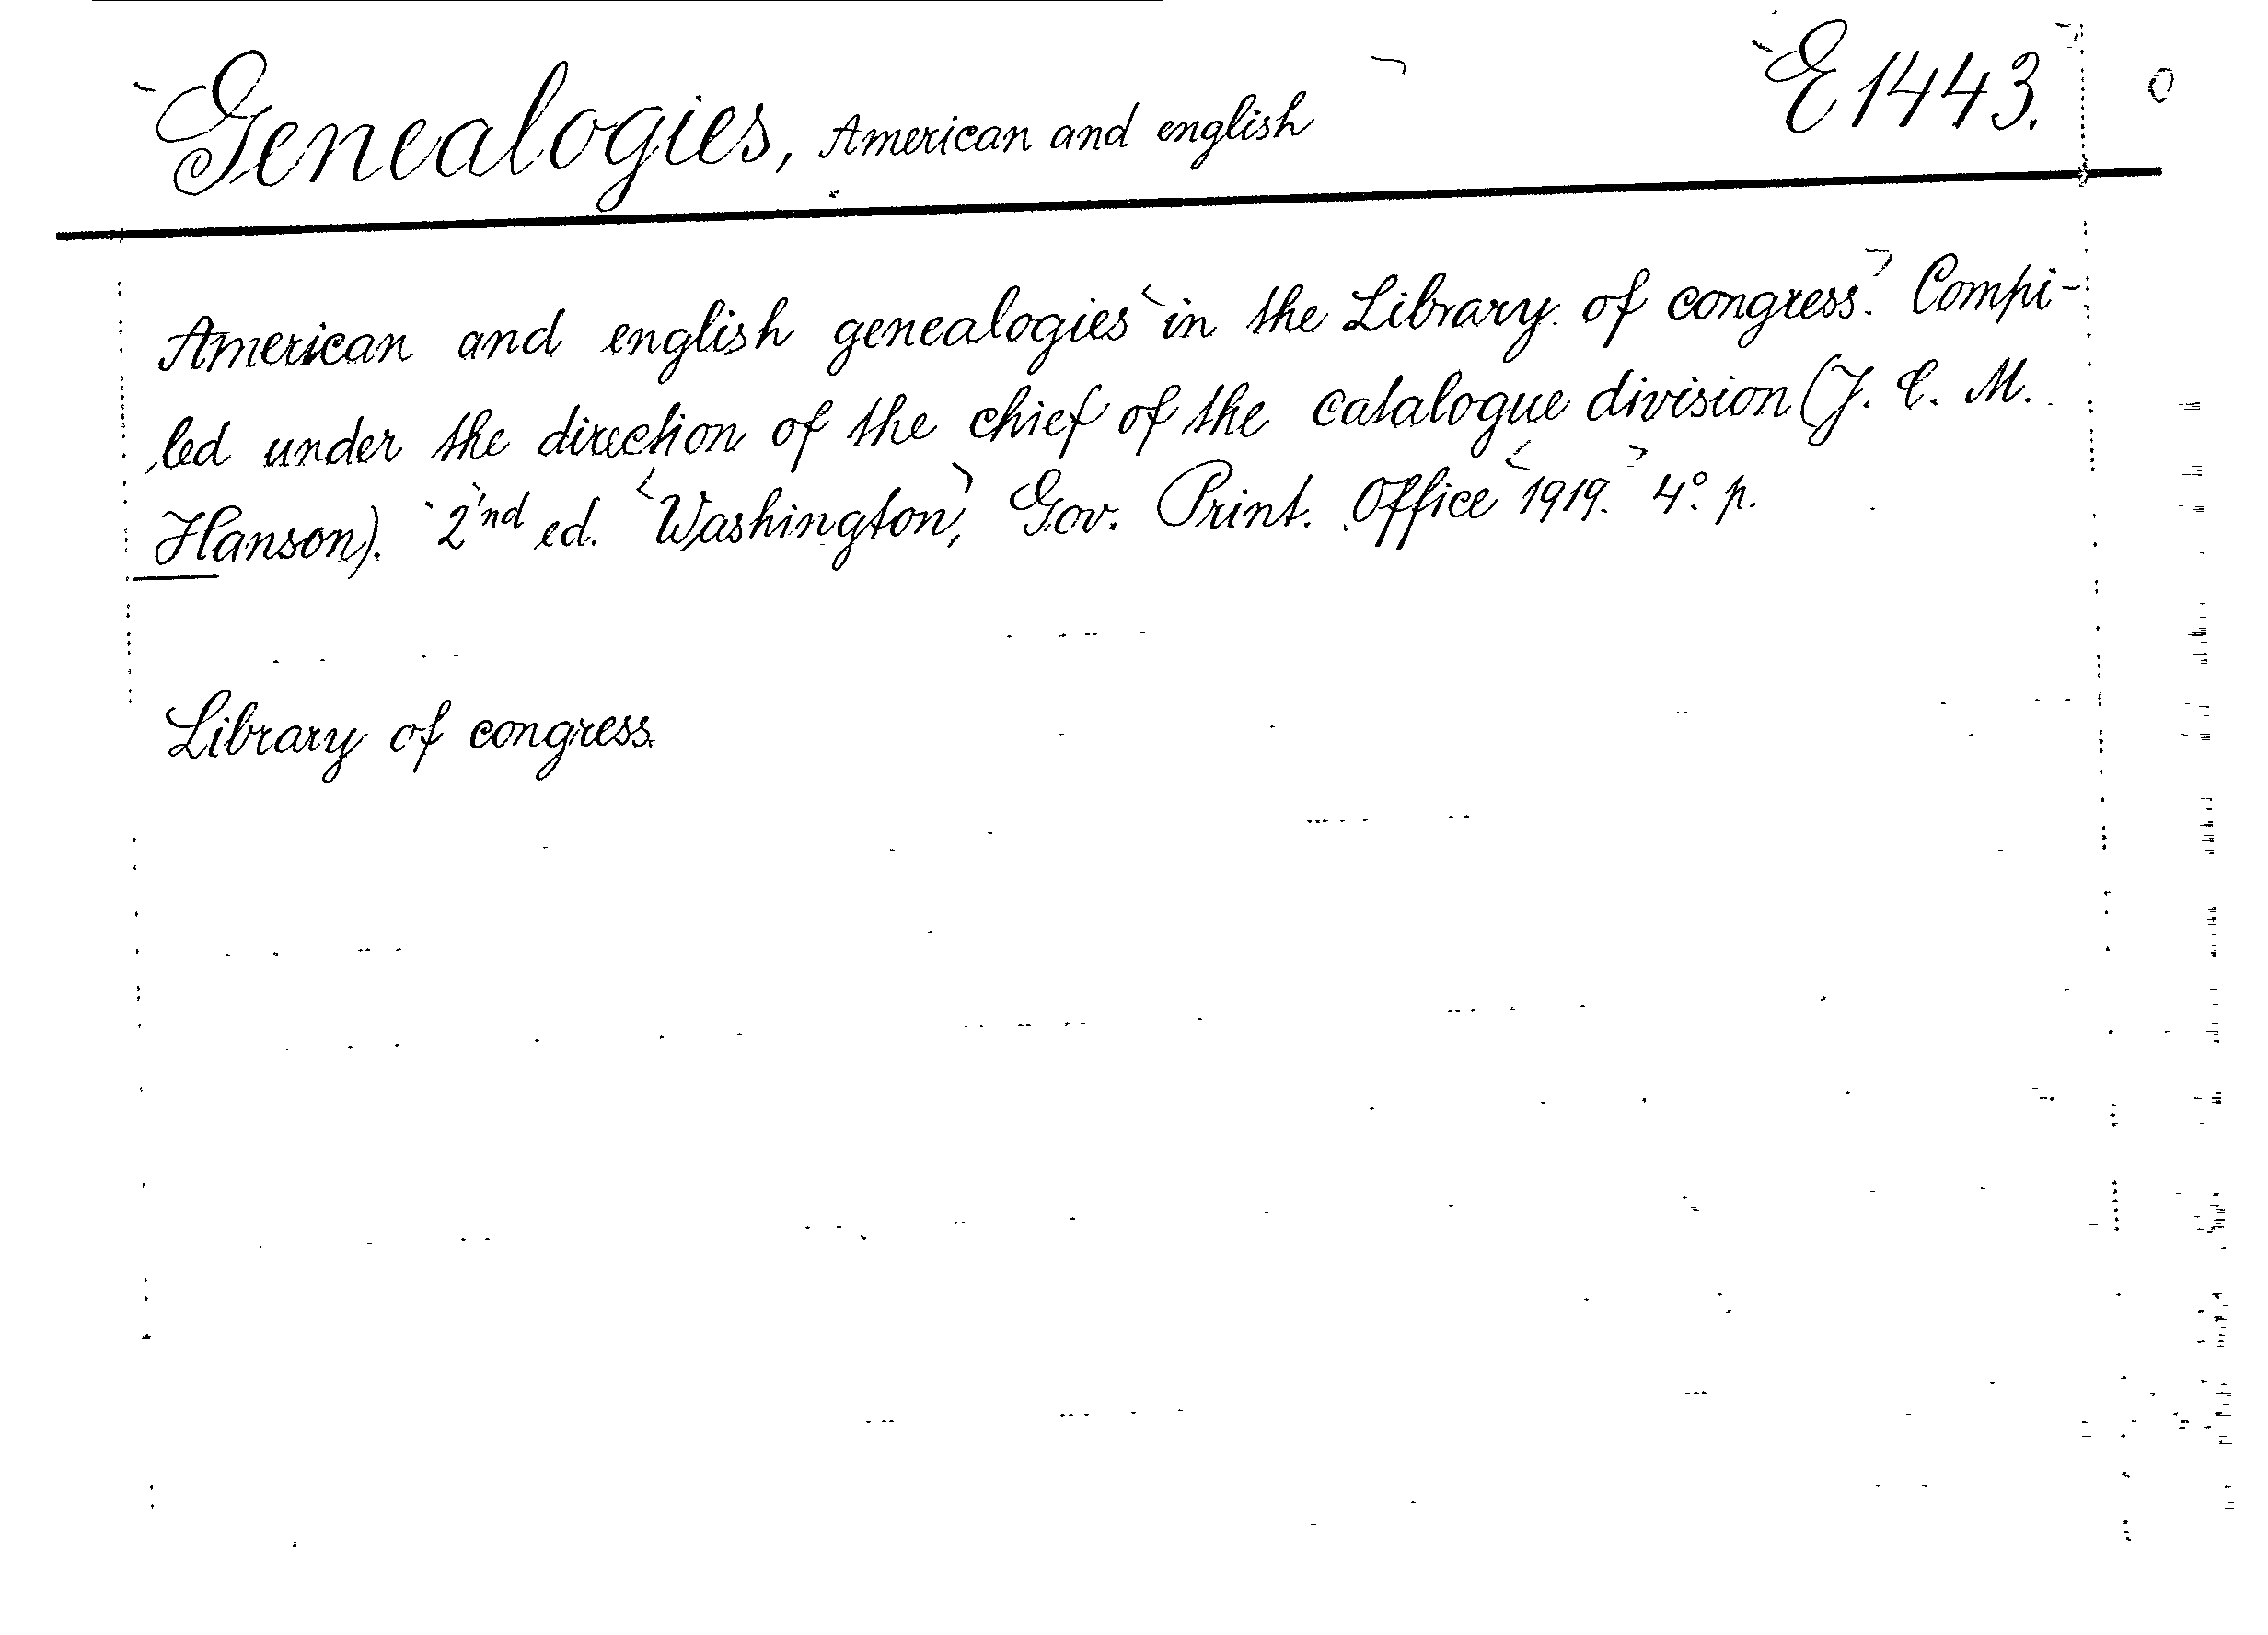 Genealogies, American and english E 1443.
American and english genealogies in the Library of congress. Compi-
led under the direction of the chief of the catalogue division (J. C. M.
Hanson). 2nd ed. Washington, Gov. Print. Office 1919. 4° p.
Library of congress.